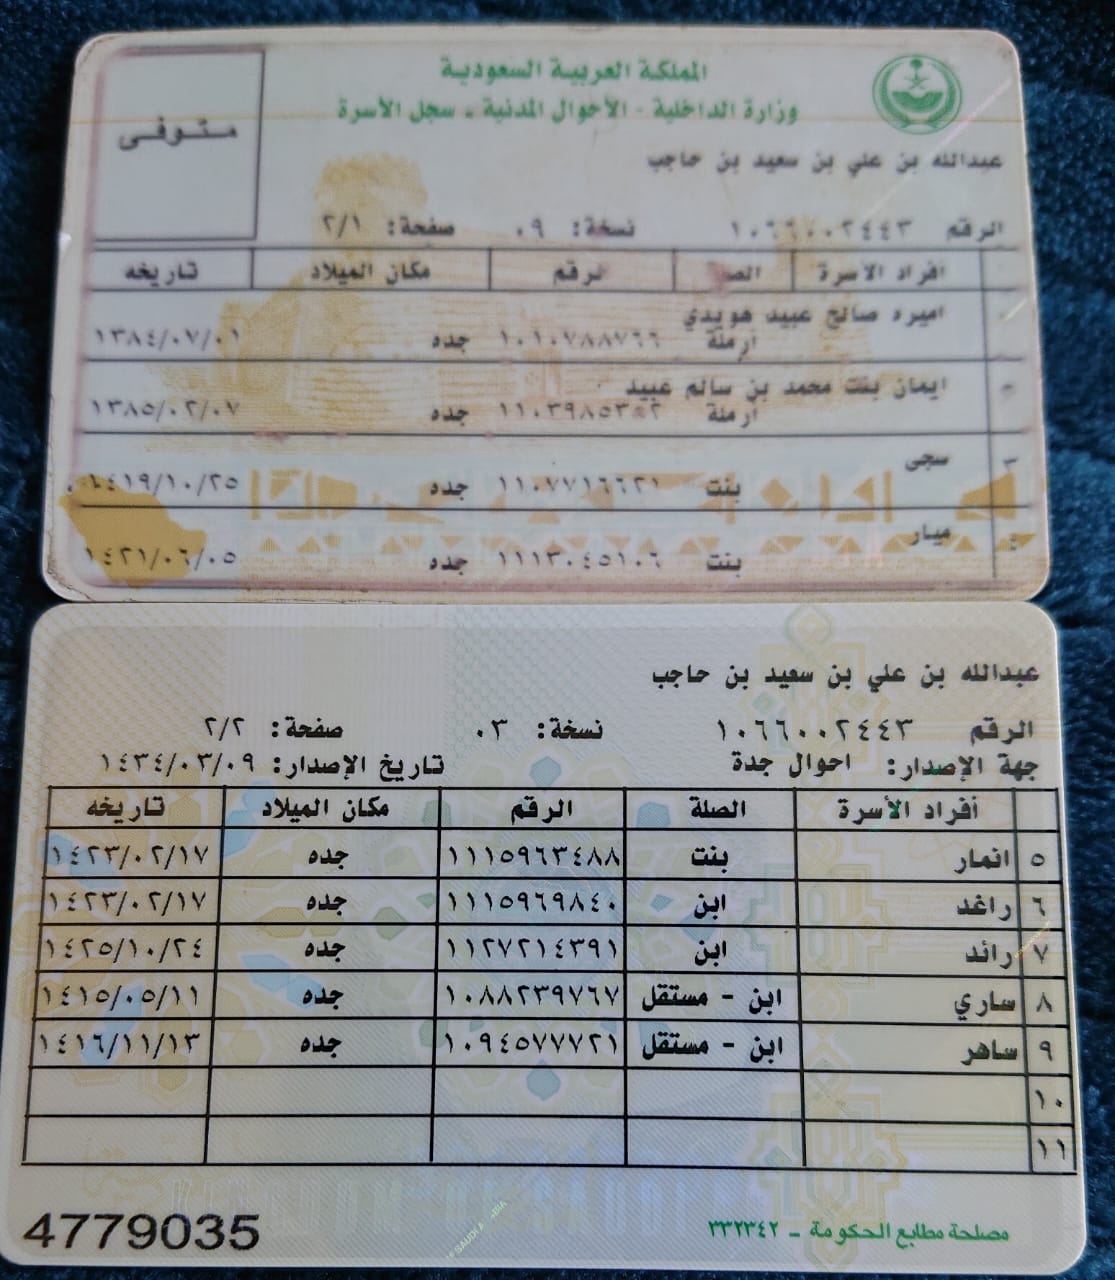 المملكة العربية السعودية
وزارة الداخلية - الأحوال المدنية - سجل الأسرة
متوفى
عبدالله بن علي بن سعيد بن حاجب
الرقم ١٠٦٦٠٠٢٤٤٣ نسخة: ٠٩ صفحة: ٢/١
أفراد الأسرة مكان الميلاد تاريخه
اميره صالح عبيد هويدي
ارملة ١٠١٠٧٨٨٧٦٦ جده ١٣٨٤/٠٧/٠١
ايمان بنت محمد بن سالم عبيد
ارملة جده ١٣٨٥/٠٢/٠٧
٣ سجى
بنت ١١٠٧٧١٦٦٢١ جده ١٤١٩/١٠/٢٥
٤ ميار
بنت ١١١٣٠٤٥١٠٦ جده ١٤٢١/٠٦/٠٥
عبدالله بن علي بن سعيد بن حاجب
الرقم ١٠٦٦٠٠٢٤٤٣ نسخة: ٠٣ صفحة: ٢/٢
جهة الإصدار: احوال جدة تاريخ الإصدار: ١٤٣٤/٠٣/٠٩
أفراد الأسرة الصلة الرقم مكان الميلاد تاريخه
٥ انمار بنت ١١١٥٩٦٣٤٨٨ جده ١٤٢٣/٠٢/١٧
٦ راغد ابن ١١١٥٩٦٩٨٤٠ جده ١٤٢٣/٠٢/١٧
٧ رائد ابن ١١٢٧٢١٤٣٩١ جده ١٤٢٥/١٠/٢٤
٨ ساري ابن - مستقل ١٠٨٨٢٣٩٧٦٧ جده ١٤١٥/٠٥/١١
٩ ساهر ابن - مستقل ١٠٩٤٥٧٧٧٢١ جده ١٤١٦/١١/١٣
١٠
١١
4779035 مصلحة مطابع الحكومة - ٣٣٢٣٤٢